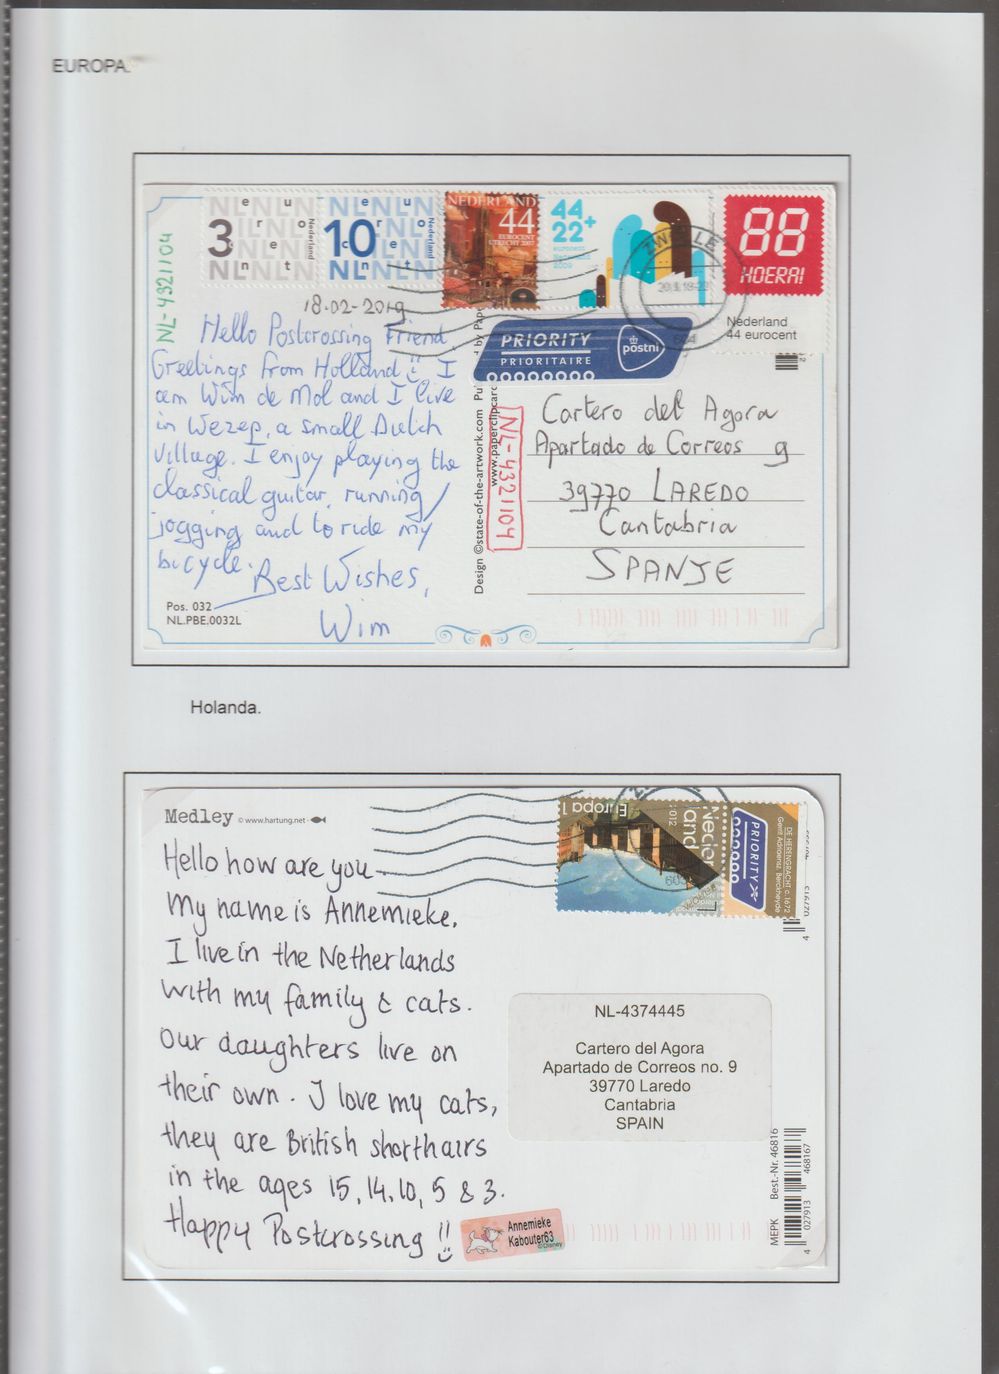 EUROPA.
3 euro cent Nederland
10 euro cent Nederland
NEDERLAND
44
EUROCENT
UTRECHT 2007
44+
22
eurocent
Nederland
2009
88
HOERA!
Nederland
44 eurocent
ZWOLLE
PRIORITY
PRIORITAIRE
postnl
NL-4321104
18-02-2019
Hello Postcrossing Friend
Greetings from Holland! I
am Wim de Mol and I live
in Wezep, a small Dutch
village. I enjoy playing the
classical guitar, running/
jogging and to ride my
bicycle.
Best Wishes,
Wim
Pos. 032
NL.PBE.0032L
Design ©state-of-the-artwork.com
www.paperclipcar
NL-4321104
Cartero del Agora
Apartado de Correos 9
39770 LAREDO
Cantabria
SPANJE
Holanda.
Medley © www.hartung.net
Europa 1
Nederland
2012
PRIORITY
DE HERENGRACHT c. 1672
Gerrit Adriaensz. Berckheyde
Hello how are you
My name is Annemieke.
I live in the Netherlands
with my family & cats.
Our daughters live on
their own. I love my cats,
they are British shorthairs
in the ages 15, 14, 10, 5 & 3.
Happy Postcrossing !!
Annemieke
Kabouter63
©Disney
NL-4374445
Cartero del Agora
Apartado de Correos no. 9
39770 Laredo
Cantabria
SPAIN
MEPK Best.-Nr. 46816
4 027913 468167